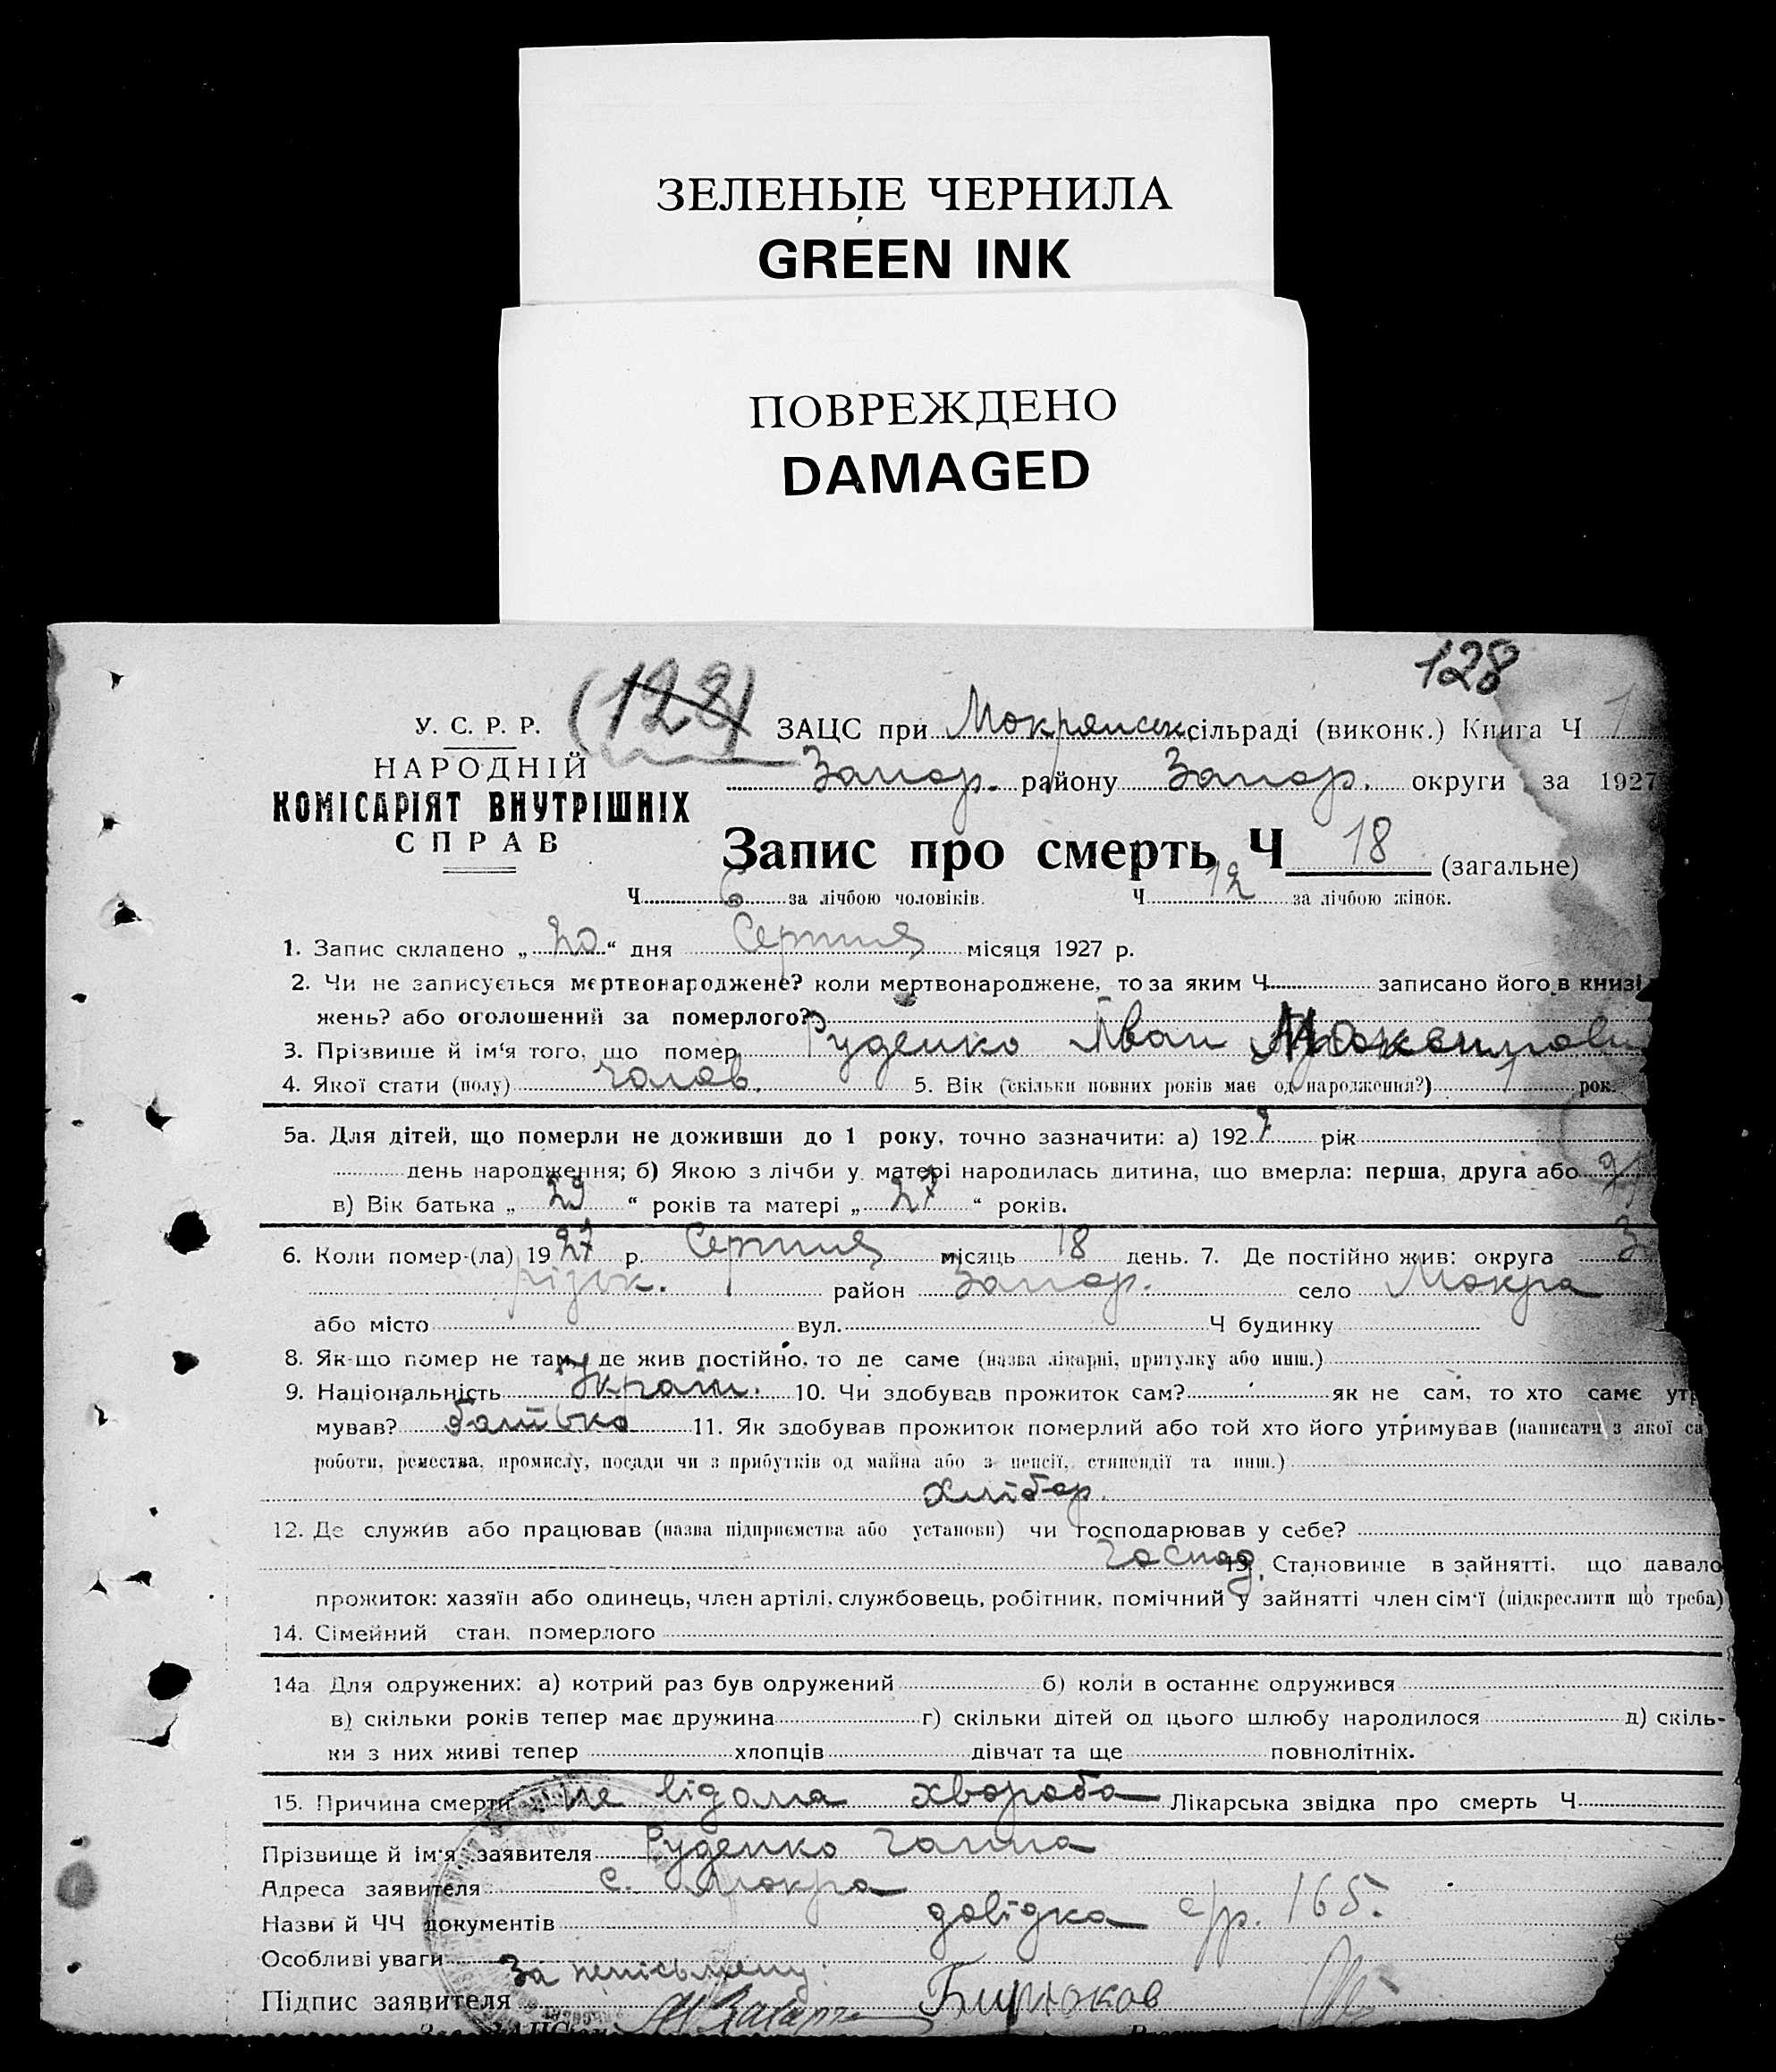 ЗЕЛЕНЫЕ ЧЕРНИЛА
GREEN INK
ПОВРЕЖДЕНО
DAMAGED
128
(128)
У. С. Р. Р.
НАРОДНІЙ
КОМІСАРІЯТ ВНУТРІШНІХ
СПРАВ
ЗАЦС при Мокрянськ. сільраді (виконк.) Книга Ч 1
Запор. району Запор. округи за 1927
Запис про смерть Ч 18 (загальне)
Ч 6 за лічбою чоловіків. Ч 12 за лічбою жінок.
1. Запис складено „ 20 “ дня Серпня місяця 1927 р.
2. Чи не записується мертвонароджене? коли мертвонароджене, то за яким Ч записано його в книзі
жень? або оголошений за померлого?
3. Прізвище й ім‘я того, що помер Руденко Іван
4. Якої стати (полу) чолов. 5. Вік (скільки повних років має од народження?) 1 рок.
5а. Для дітей, що померли не доживши до 1 року, точно зазначити: а) 1927 рік
день народження; б) Якою з лічби у матері народилась дитина, що вмерла: перша, друга або
в) Вік батька „ 29 “ років та матері „ 27 “ років.
6. Коли помер-(ла) 1927 р. Серпня місяць 18 день. 7. Де постійно жив: округа З
різьк. район Запор. село Мокра
або місто вул. Ч будинку
8. Як-що помер не там, де жив постійно, то де саме (назва лікарні, притулку або инш.)
9. Національність Украін. 10. Чи здобував прожиток сам? як не сам, то хто саме ут
мував? батько 11. Як здобував прожиток померлий або той хто його утримував (написати з якої са
роботи, ремества, промислу, посади чи з прибутків од майна або з пенсії, стипендії та инш.)
хлібор.
12. Де служив або працював (назва підприємства або установи) чи господарював у себе?
господ. 13. Становище в зайнятті, що давало
прожиток: хазяїн або одинець, член артілі, службовець, робітник, помічний у зайнятті член сім‘ї (підкреслити що треба)
14. Сімейний стан померлого
14а Для одружених: а) котрий раз був одружений б) коли в останнє одружився
в) скільки років тепер має дружина г) скільки дітей од цього шлюбу народилося д) скіль-
ки з них живі тепер хлопців дівчат та ще повнолітніх.
15. Причина смерти не відома хвороба Лікарська звідка про смерть Ч
Прізвище й ім‘я заявителя Руденко Ганна
Адреса заявителя с. Мокра
Назви й ЧЧ документів довідка с/р. 165.
Особливі уваги
За неписьмену:
Підпис заявителя Бирюков